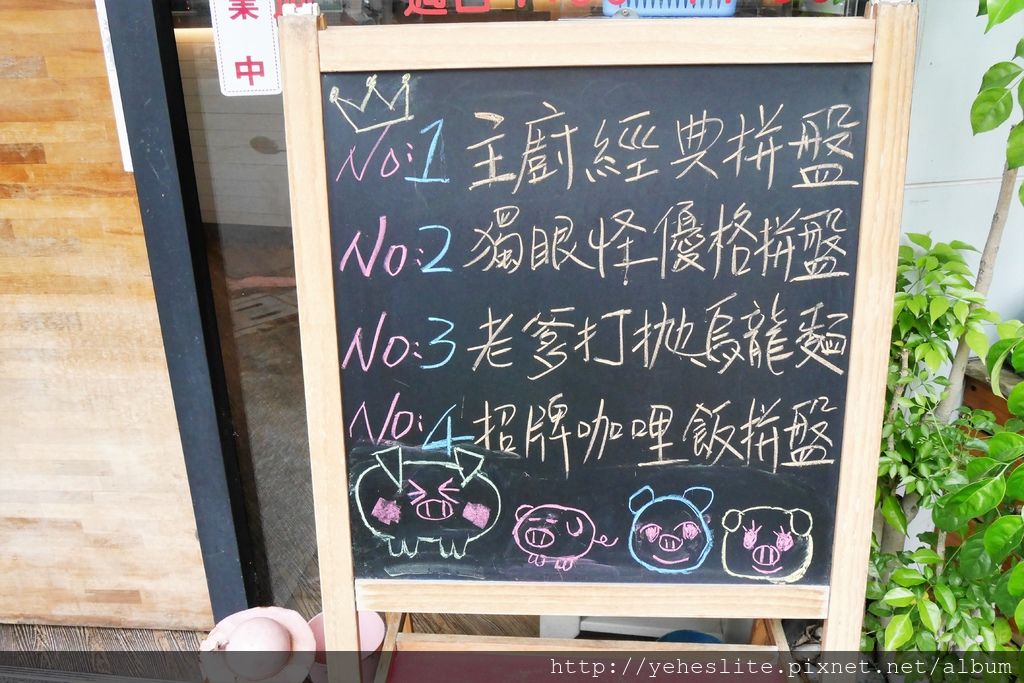 業
中
No:1 主廚經典拼盤
No:2 獨眼怪優格拼盤
No:3 老爹打拋烏龍麵
No:4 招牌咖哩飯拼盤
http://yeheslite.pixnet.net/album